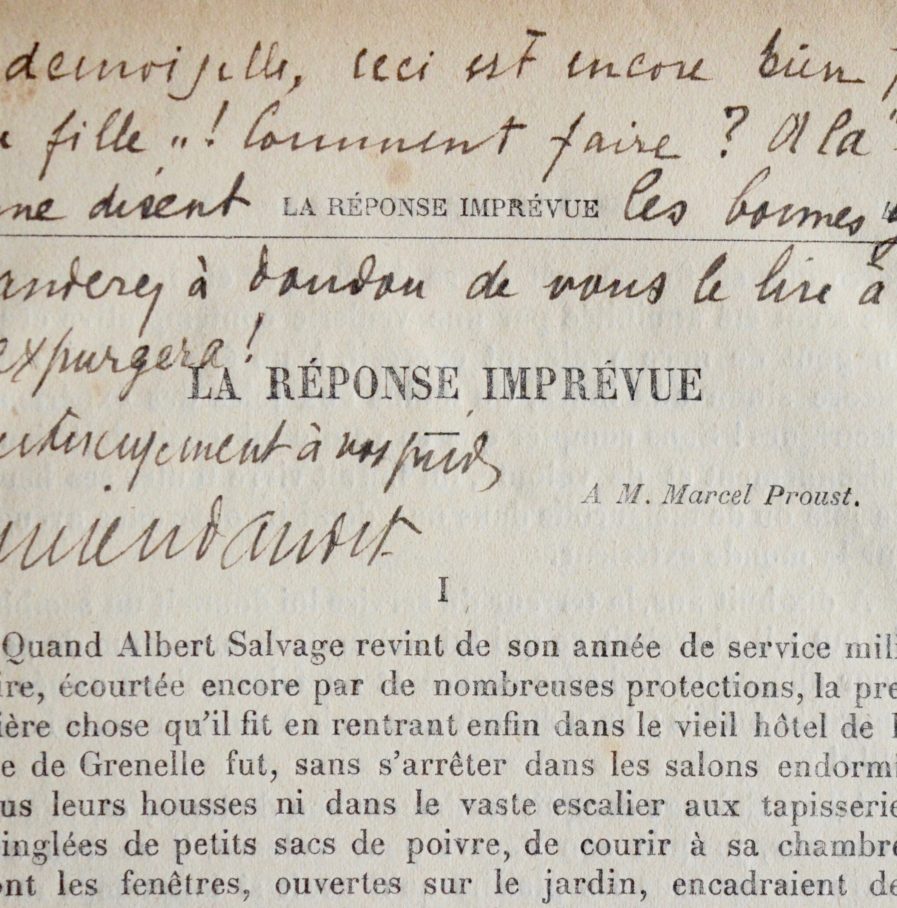 demoiselle, ceci est encore bien
fille "! Comment faire ? A la
disent LA RÉPONSE IMPRÉVUE les bonnes
anderez à doudou de vous le lire à
expurgera !
LA RÉPONSE IMPRÉVUE
à vos pieds
A M. Marcel Proust.
Lucien Daudet
I
Quand Albert Salvage revint de son année de service mili
ire, écourtée encore par de nombreuses protections, la pre
ière chose qu'il fit en rentrant enfin dans le vieil hôtel de l
e de Grenelle fut, sans s'arrêter dans les salons endormi
us leurs housses ni dans le vaste escalier aux tapisserie
inglées de petits sacs de poivre, de courir à sa chambre
ont les fenêtres, ouvertes sur le jardin, encadraient de